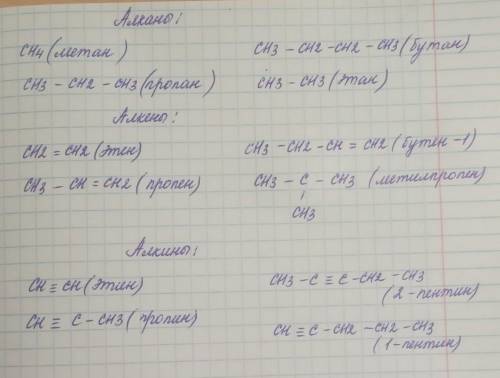 Алканы:
CH4 (метан) CH3 – CH2 – CH2 – CH3 (бутан)
CH3 – CH2 – CH3 (пропан) CH3 – CH3 (этан)
Алкены:
CH2 = CH2 (этен) CH3 – CH2 – CH = CH2 (бутен -1)
CH3 – CH = CH2 (пропен) CH3 – C – CH3 (метилпропен)
CH3
Алкины:
CH ≡ CH (этин) CH3 – C ≡ C – CH2 – CH3
(2-пентин)
CH ≡ C – CH3 (пропин) CH ≡ C – CH2 – CH2 – CH3
(1-пентин)